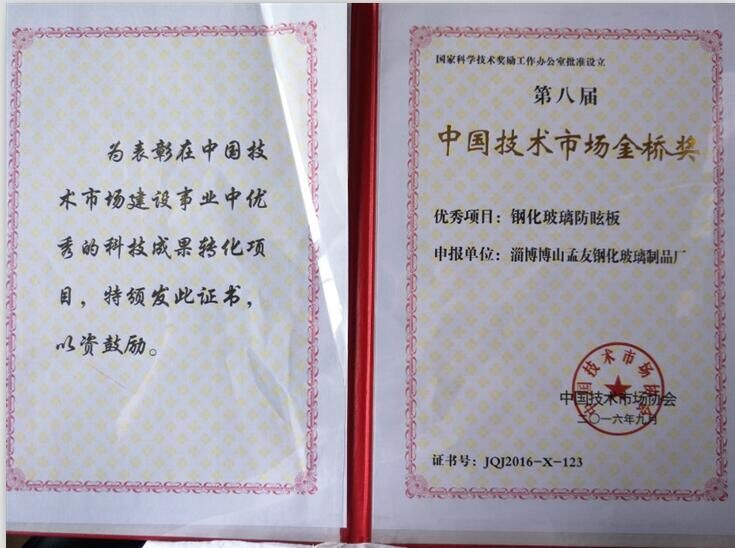 为表彰在中国技
术市场建设事业中优
秀的科技成果转化项
目，特颁发此证书，
以资鼓励。
国家科学技术奖励工作办公室批准设立
第八届
中国技术市场金桥奖
优秀项目：钢化玻璃防眩板
申报单位：淄博博山孟友钢化玻璃制品厂
中国技术市场协会
中国技术市场协会
二〇一六年九月
证书号：JQJ2016-X-123